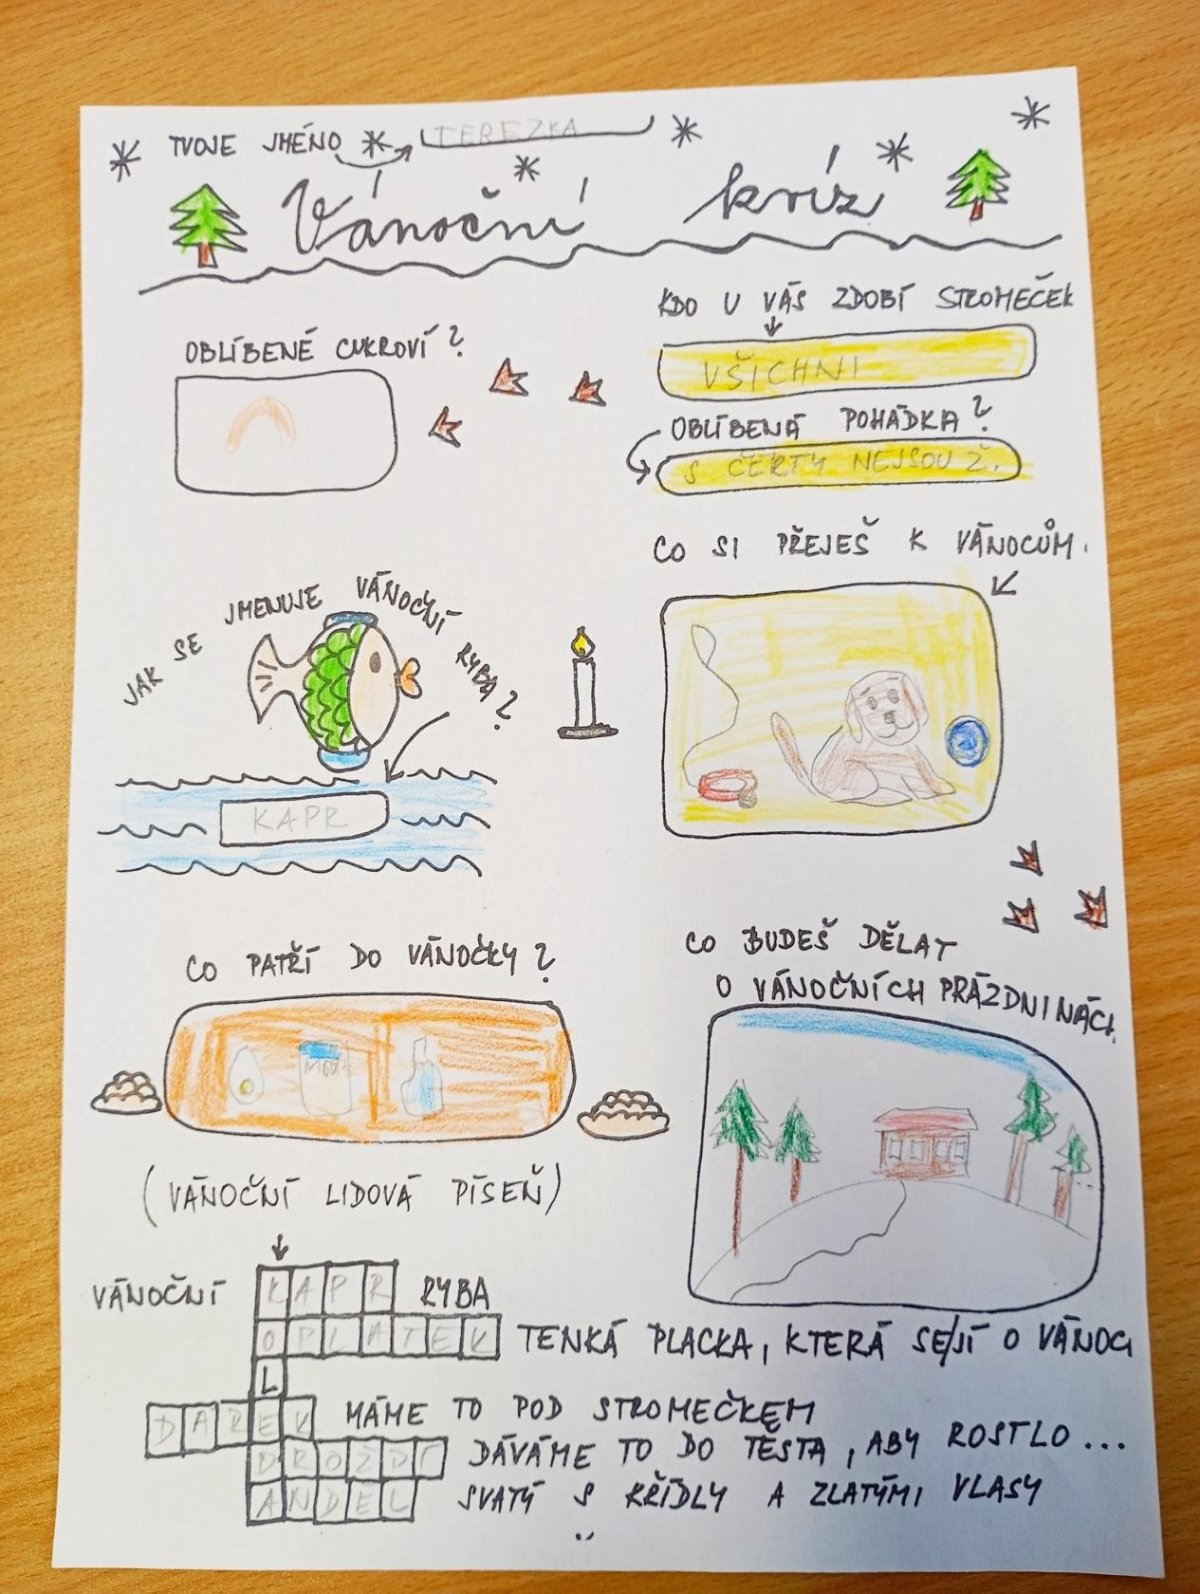 TVOJE JMÉNO
TEREZKA
Vánoční kvíz
OBLÍBENÉ CUKROVÍ?
KDO U VÁS ZDOBÍ STROMEČEK
VŠICHNI
OBLÍBENÁ POHÁDKA?
S ČERTY NEJSOU Ž.
CO SI PŘEJEŠ K VÁNOCŮM.
JAK SE JMENUJE VÁNOČNÍ RYBA?
KAPR
CO PATŘÍ DO VÁNOČKY?
CO BUDEŠ DĚLAT
O VÁNOČNÍCH PRÁZDNINÁCH.
(VÁNOČNÍ LIDOVÁ PÍSEŇ)
VÁNOČNÍ KAPR RYBA
OPLATEK TENKÁ PLACKA, KTERÁ SE JÍ O VÁNOCI
L
DAREK MÁME TO POD STROMEČKEM
DROŽDÍ DÁVÁME TO DO TĚSTA, ABY ROSTLO...
ANDĚL SVATÝ S KŘÍDLY A ZLATÝMI VLASY